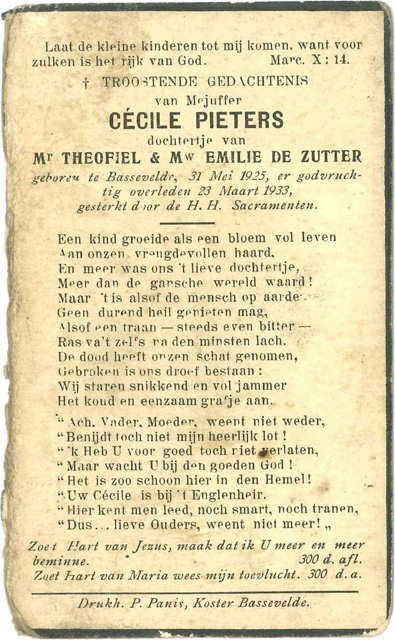 Laat de kleine kinderen tot mij komen, want voor
zulken is het rijk van God. Marc. X : 14.
† TROOSTENDE GEDACHTENIS
van Mejuffer
CÉCILE PIETERS
dochtertje van
Mr THEOFIEL & Mw EMILIE DE ZUTTER
geboren te Bassevelde, 31 Mei 1925, er godvruch-
tig overleden 23 Maart 1933,
gesterkt door de H. H. Sacramenten.
Een kind groeide als een bloem vol leven
Aan onzen vreugdevollen haard,
En meer was ons 't lieve dochtertje,
Meer dan de gansche wereld waard !
Maar 't is alsof de mensch op aarde
Geen durend heil genieten mag,
Alsof een traan — steeds even bitter —
Ras va't zelfs na den minsten lach.
De dood heeft onzen schat genomen,
Gebroken is ons droef bestaan :
Wij staren snikkend en vol jammer
Het koud en eenzaam grafje aan.
“ Ach, Vader, Moeder, weent niet weder,
“ Benijdt toch niet mijn heerlijk lot !
“ 'k Heb U voor goed toch niet verlaten,
“ Maar wacht U bij den goeden God !
“ Het is zoo schoon hier in den Hemel !
“ Uw Cécile is bij 't Englenheir.
“ Hier kent men leed, noch smart, noch tranen,
“ Dus... lieve Ouders, weent niet meer ! „
Zoet Hart van Jezus, maak dat ik U meer en meer
beminne. 300 d. afl.
Zoet Hart van Maria wees mijn toevlucht. 300 d. a.
Drukh. P. Panis, Koster Bassevelde.